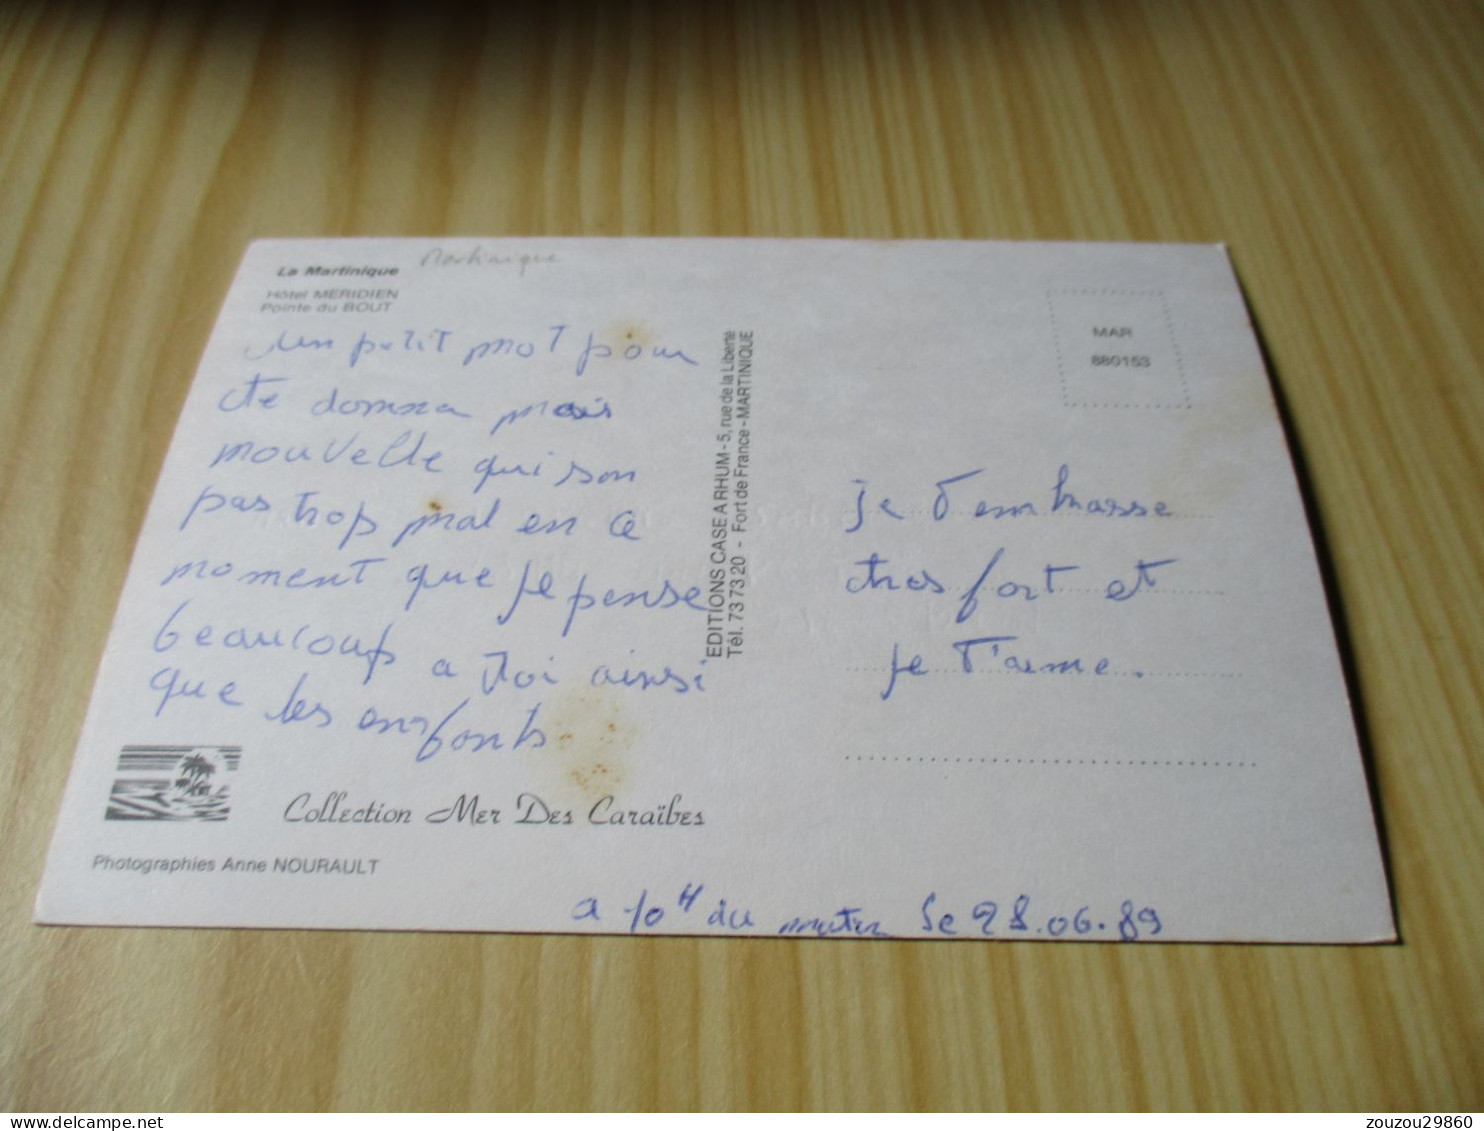 La Martinique
Martinique
Hôtel MERIDIEN
Pointe du BOUT
un petit mot pour
te donna mais
nouvelle qui son
pas trop mal en ce
moment que je pense
beaucoup a toi ainsi
que les enfants
Collection Mer Des Caraïbes
Photographies Anne NOURAULT
EDITIONS CASE A RHUM - 5, rue de la Liberté
Tél. 73 73 20 - Fort de France - MARTINIQUE
MAR
880153
je t'embrasse
tres fort et
je t'aime.
a 10H du matin le 28.06.89
zouzou29860